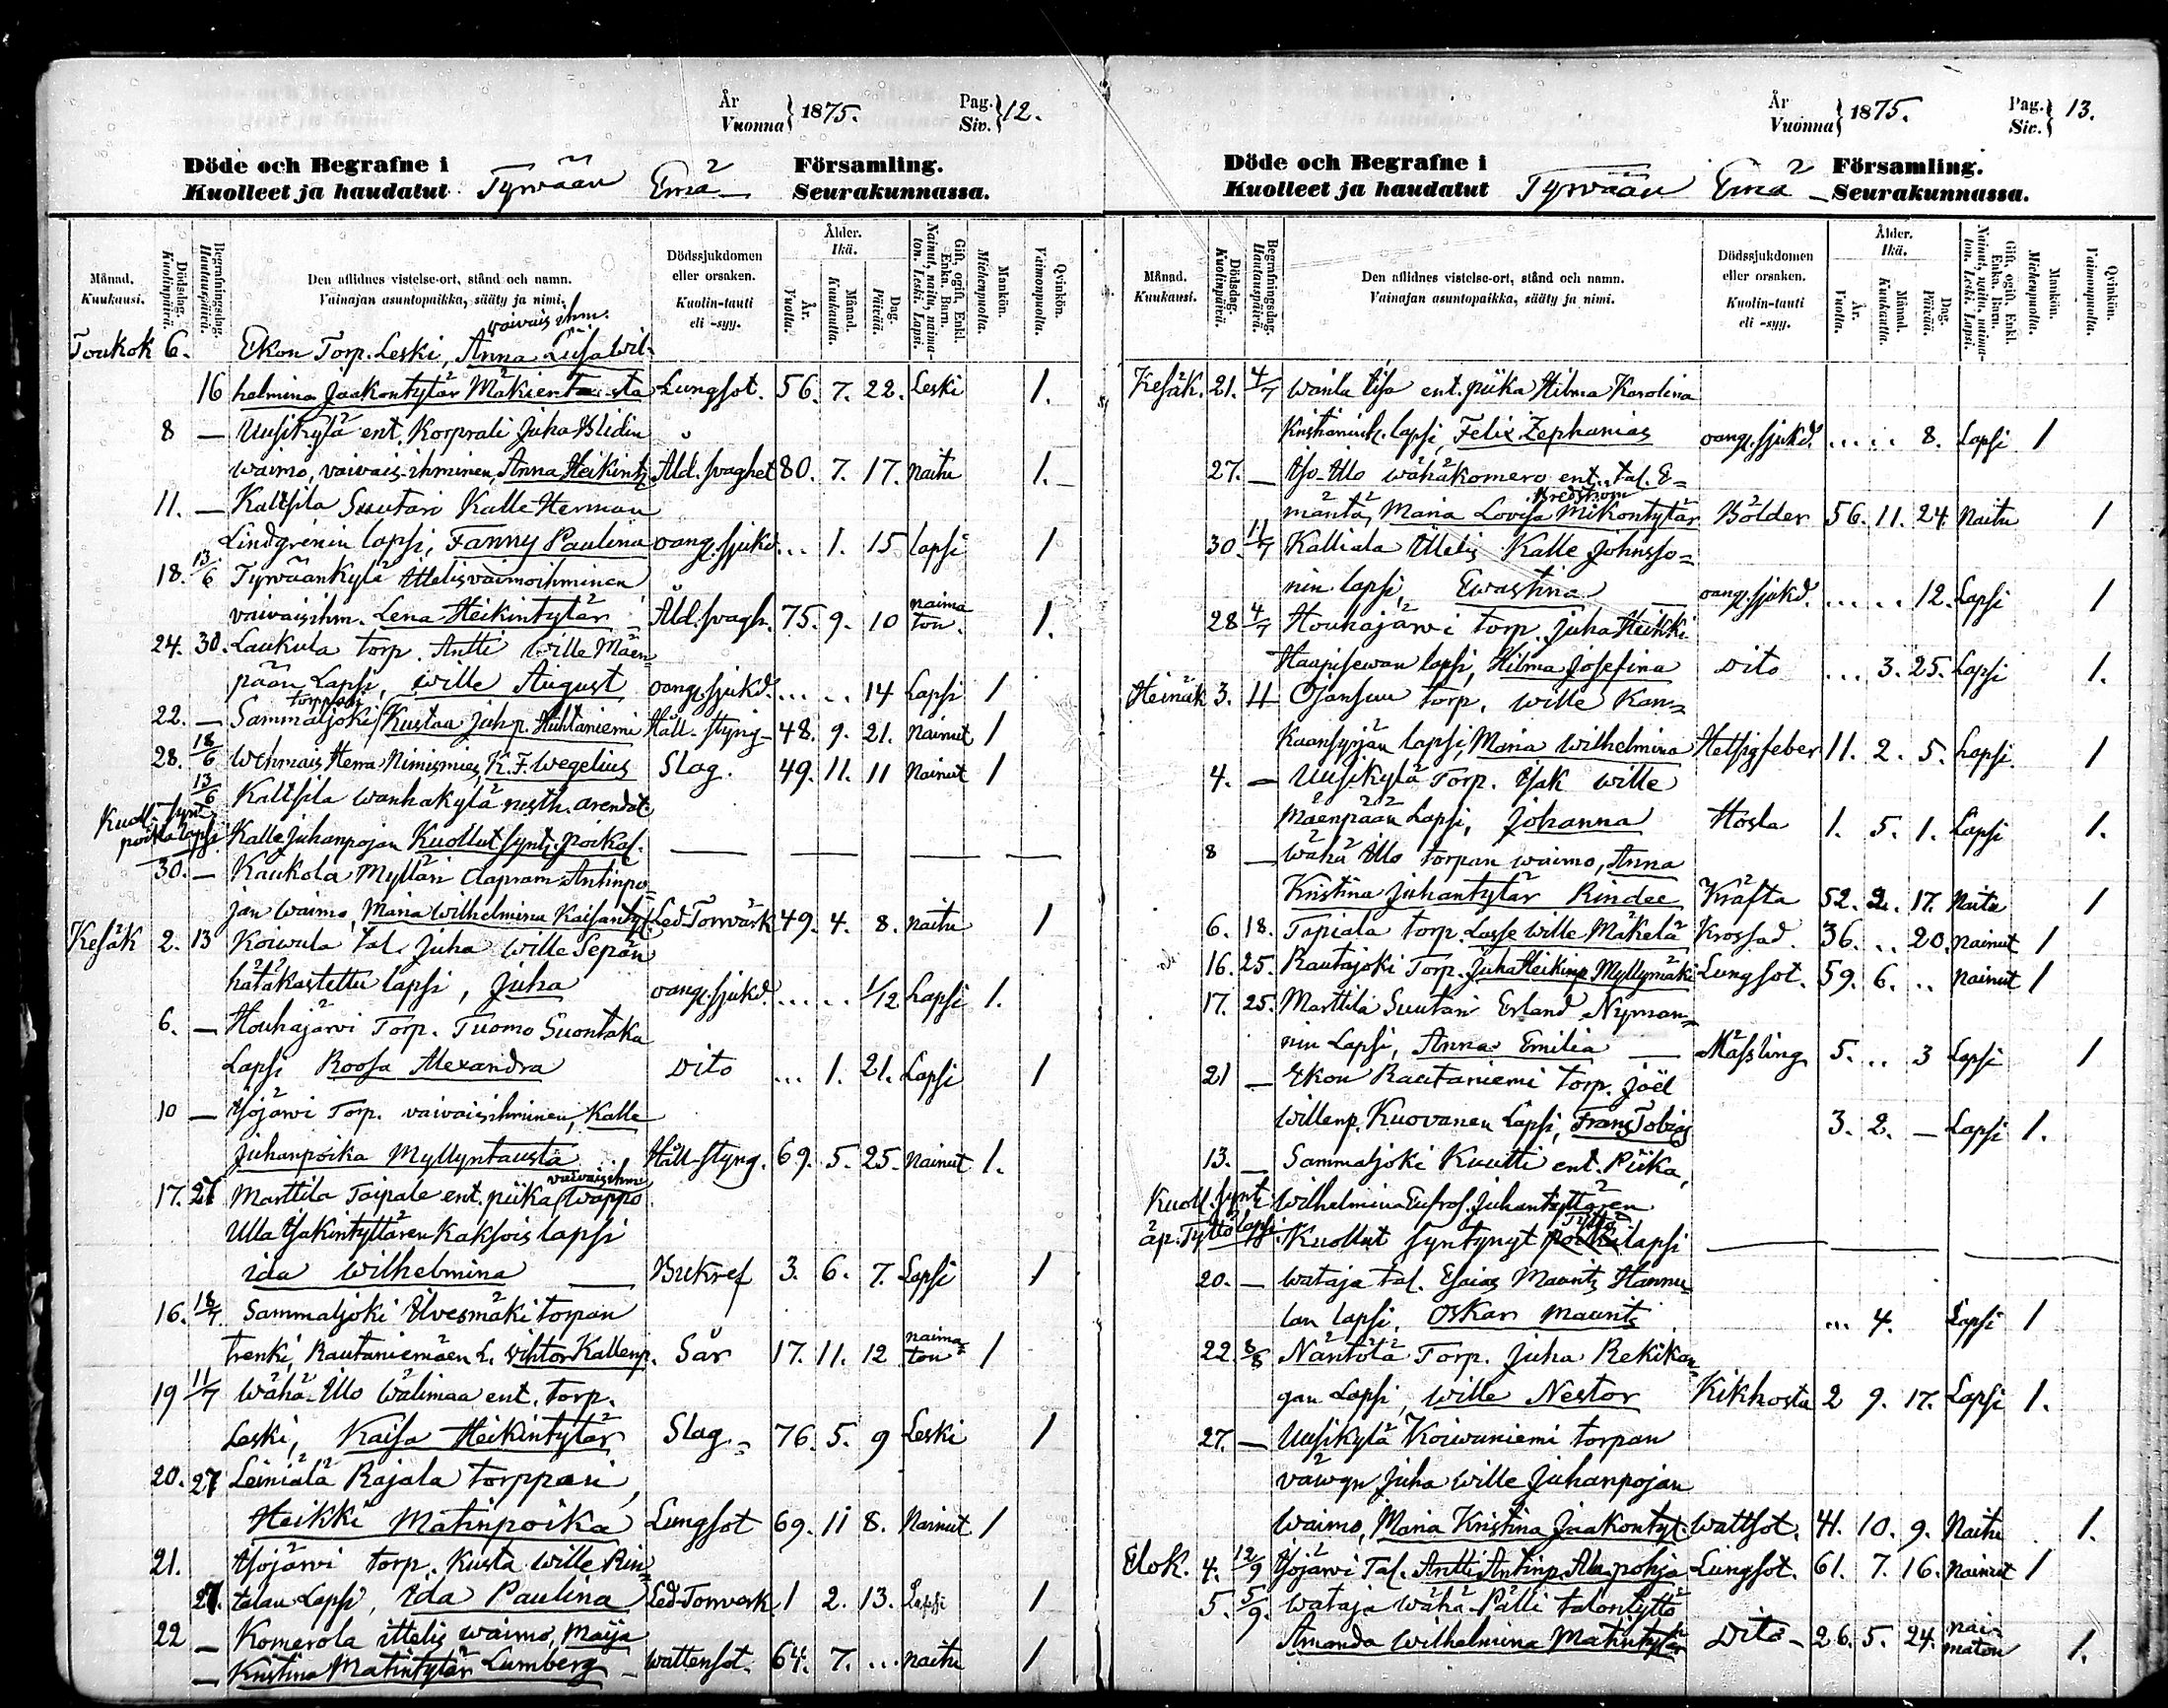 År
Vuonna } 1875.
Pag.
Siv. } 12.
Döde och Begrafne i
Kuolleet ja haudatut Tyrwään Emä Församling.
Seurakunnassa.
Månad. Kuukausi.
Dödsdag. Kuolinpäivä.
Begrafningsdag. Hautauspäivä.
Den aflidnes vistelse-ort, stånd och namn.
Vainajan asuntopaikka, sääty ja nimi.
Dödssjukdomen eller orsaken.
Kuolin-tauti eli -syy.
Ålder. Ikä.
År. Vuotta.
Månad. Kuukautta.
Dag. Päivää.
Gift, ogift, Enkl. Enka. Barn.
Nainut, naitu, naimaton. Leski. Lapsi.
Mankön. Miehenpuolta.
Qvinkön. Vaimonpuolta.
vaivais ihm.
Toukok 6. Ekon Torp. Leski, Anna Luisa Wil-
16 helmina Jaakontytär Mäkientausta Lungsot. 56. 7. 22. Leski 1.
8 — Uusikylä ent. Korprali Juha Blidin
waimo, vaivais-ihminen, Anna Heikint. Åld. svaghet 80. 7. 17. naitu 1.
11. — Kaltsila Suutari Kalle Herman
Lindgrenin lapsi, Fanny Paulina oang. sjukd. .. 1. 15 lapsi 1
18. 13/6 Tyrwäänkylä Ittelisvaimoihminen
vaivaisihm. Lena Heikintytär Åld. svagh. 75. 9. 10 naimaton. 1.
24. 30. Laukula torp. Antti Wille Mäen-
pään Lapsi, Wille August oang. sjukd. .. .. 14 Lapsi 1
torppari
22. — Sammaljoki, Kustaa Juh.p. Huhtaniemi Håll-styng 48. 9. 21. nainut 1
28. 18/6 Wehmais Herra Nimismies, K. F. Wegelius Slag. 49. 11. 11 nainut 1
13/6 Kaltsila Wanhakylä rusth. arendat.
Kuoll. synt. poika lapsi Kalle Juhanpojan Kuollut synt. poikal. — — — —
30. — Kaukola Mylläri Abram Antinpo-
jan waimo, Maria Wilhelmina Kaisanty. Led-Torwärk 49. 4. 8. naitu 1
Kesäk 2. 13 Koiwula tal. Juha Wille Sepän
hätäkastettu lapsi, Juha oang. sjukd. .. .. 1/12 Lapsi 1.
6. — Houhajärwi Torp. Tuomo Suontaka
Lapsi Roosa Alexandra Dito ... 1. 21. Lapsi 1
10 — Isojärwi Torp. vaivaisihminen, Kalle
Juhanpoika Myllyntausta Håll-styng. 69. 5. 25. nainut 1.
vaivaisihm.
17. 27 Marttila Taipale ent. piika Wappo
Ulla Isakintyttären kaksois lapsi
Ida Wilhelmina — Bukref 3. 6. 7. Lapsi 1
16. 18/7 Sammaljoki Ilvesmäki torpan
trenki, Rautaniemäen L. Wihtor Kallenp. Sår 17. 11. 12 naimaton 1
19 11/7 Wähä-Ullo Wälimaa ent. torp.
Leski, Kaisa Heikintytär Slag. 76. 5. 9 Leski 1
20. 27 Leiniälä Rajala torppari,
Heikki Matinpoika Lungsot 69. 11 8. Nainut 1
21. Isojärwi torp. Kusta Wille Rin-
27. talan Lapsi, Ida Paulina Led-Torwerk 1 2. 13. Lapsi 1
22 — Komerola ittelis waimo, Maija
— Kristina Matintytär Lumberg — wattensot. 64. 7. ... naitu 1
År
Vuonna } 1875.
Pag.
Siv. } 13.
Döde och Begrafne i
Kuolleet ja haudatut Tyrwään Emä Församling.
Seurakunnassa.
Månad. Kuukausi.
Dödsdag. Kuolinpäivä.
Begrafningsdag. Hautauspäivä.
Den aflidnes vistelse-ort, stånd och namn.
Vainajan asuntopaikka, sääty ja nimi.
Dödssjukdomen eller orsaken.
Kuolin-tauti eli -syy.
Ålder. Ikä.
År. Vuotta.
Månad. Kuukautta.
Dag. Päivää.
Gift, ogift, Enkl. Enka. Barn.
Nainut, naitu, naimaton. Leski. Lapsi.
Mankön. Miehenpuolta.
Qvinkön. Vaimonpuolta.
Kesäk. 21. 4/7 ent. piika Hilma Karolina
lapsi, Felix Zephanias oang. sjukd. .. .. 8. Lapsi 1
27. — Iso-Ullo Wähäkomero ent. tal. E-
Bredstrom
mäntä, Maria Lovisa Mikontytär Bölder 56. 11. 24. Naitu 1
30. 11/7 Kalliala Ittelis Kalle Johnsso-
nin lapsi, Ewastina oang. sjukd. .. .. 12. Lapsi 1
28 4/7 Houhajärwi torp. Juha Heikki
Haapisewan lapsi, Hilma Josefina Dito ... 3. 25. Lapsi 1.
Heinäk 3. 11 Ojansuu torp. Wille Kan-
Kaansyrjän lapsi, Maria Wilhelmina Hetsigfeber 11. 2. 5. Lapsi. 1
4. — Uusikylä Torp. Isak Wille
Mäenpään Lapsi, Johanna Hosta 1. 5. 1. Lapsi 1.
8 — Wähä Ullo torpan waimo, Anna
Kristina Juhantytär Rindee Kräfta 52. 2. 17. Naitu 1
6. 18. Tapiala torp. Lasse Wille Mäkelä Krossad. 36. .. 20. nainut 1
16. 25. Rautajoki Torp. Juha Heikinp. Myllymäki Lungsot. 59. 6. .. nainut 1
17. 25. Marttila Suutari Erland Nyman-
nin Lapsi, Anna Emilia — Mässling 5. .. 3 Lapsi 1
21 — Ekon Rautaniemi torp. Joël
Willenp. Kuovanen Lapsi, Frans Tobias 3. 2. — Lapsi 1.
13. — Sammaljoki Kuutti ent. Piika,
Kuoll. synt. Wilhelmina Eufros. Juhantyttären
Tyttö
äp. Tyttö lapsi Kuollut syntynyt poika lapsi — — —
20. — Wataja tal. Esaias Mauritz Hannu-
lan lapsi, Oskar Maurits ... 4. Lapsi 1
22. 8/8 Näntölä Torp. Juha Rekikan-
gan Lapsi, Wille Nestor Kikhosta 2 9. 17. Lapsi 1.
27. — Uusikylä Koiwuniemi torpan
vävyn Juha Wille Juhanpojan
Waimo, Maria Kristina Jaakontyt. wattsot. 41. 10. 9. Naitu 1.
Elok. 4. 12/9 Isojärwi Tal. Antti Antinp. Alapohja Lungsot. 61. 7. 16. nainut 1
5. 5/9. Wataja Wähä-Pälli talontyttö
Amanda Wilhelmina Matintytär Dito — 26. 5. 24. naimaton 1.